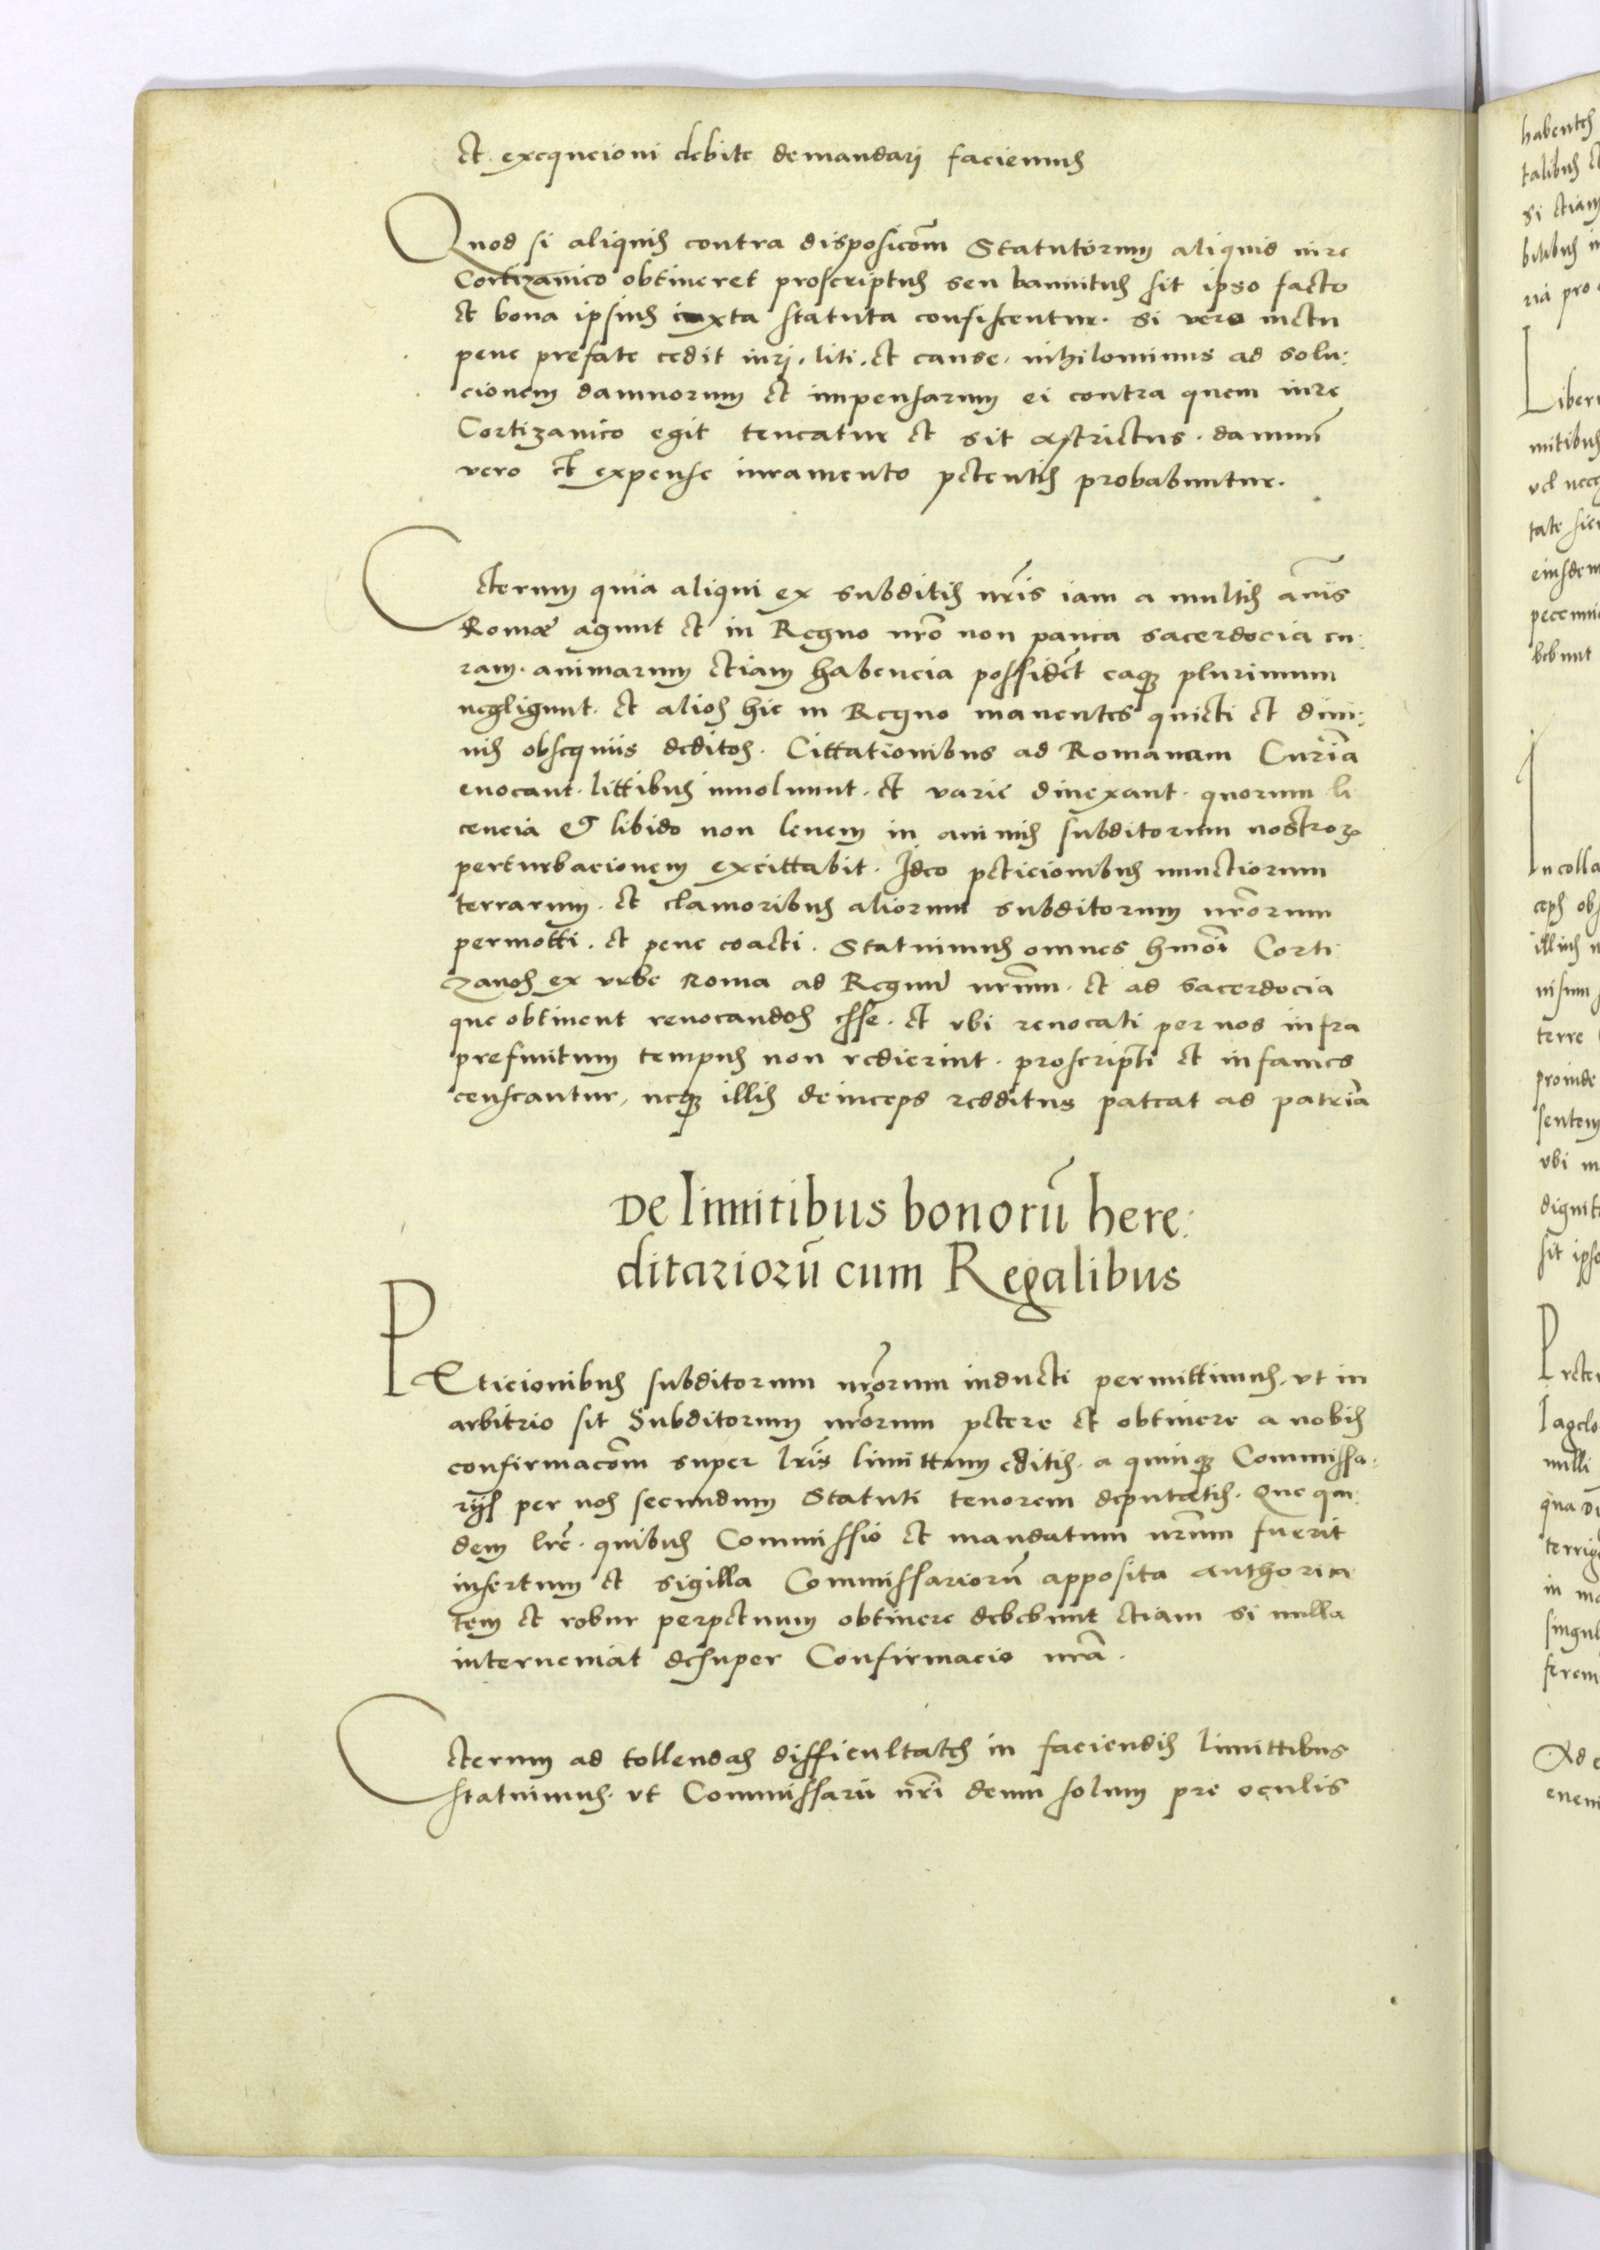 et exequcioni debite demandari faciemus
Quod si aliquis contra disposicoem Statutorum aliquid iure
Cortizanico obtineret proscriptus seu bannitus sit ipso facto
et bona ipsius iuxta statuta confiscentur. si vero metu
pene prefate cedit iuri. liti. et cause. nihilominus ad solu:
cionem damnorum et impensarum ei contra quem iure
Cortizanico egit teneatur et sit astrictus. damnu
vero et expense iuramento petentis probabuntur.
Ceterum quia aliqui ex subditis nris iam a multis annis
Romae agunt et in Regno nro non pauca sacerdocia cu:
ram. animarum etiam habencia possidet eaq3 plurimum
negligunt. et alios hic in Regno manentes quieti et diui:
nis obsequiis deditos. Cittationibus ad Romanam Curia
euocant. littibus inuoluunt. et varie diuexant. quorum li
cencia & libido non leuem in animis subditorum nostror
perturbacionem excittabit. Ideo peticionibus nunctiorum
terrarum. et clamoribus aliorum subditorum nrorum
permotti. et pene coacti. Statuimus omnes hmoi Corti
zanos ex vrbe Roma ad Regnu nrum. et ad sacerdocia
que obtinent reuocandos esse. et vbi reuocati per nos infra
prefinitum tempus non redierint. proscripti et infames
censeantur, neq3 illis deinceps redditus pateat ad patria
De limitibus bonorū here:
ditariorū cum Regalibus
PEticionibus subditorum nrorum inducti permittimus. vt in
arbitrio sit Subditorum nrorum petere et obtinere a nobis
confirmacoem super lris limittum editis. a quinq3 Commissa:
rijs per nos secundum Statuti tenorem deputatis. Que qui
dem lre. quibus Commissio et mandatum nrum fuerit
insertum et sigilla Commissariorū apposita authorita
tem et robur perpetuum obtinere debebunt etiam si nulla
interueniat desuper Confirmacio nra.
Ceterum ad tollendas difficultates in faciendis limittibus
statuimus. vt Commissarii nri deum solum pre oculis
habentes
talibus et
si etiam
ria pro
Liber
mitibus
vel neg
tate
eiusdem
pecunia
bebunt
In colla
illius
nisum
terre
proinde
sentem
vbi
dignit
sit ipso
Preter
Iagelo
nulli
terrig
in
singul
Ad